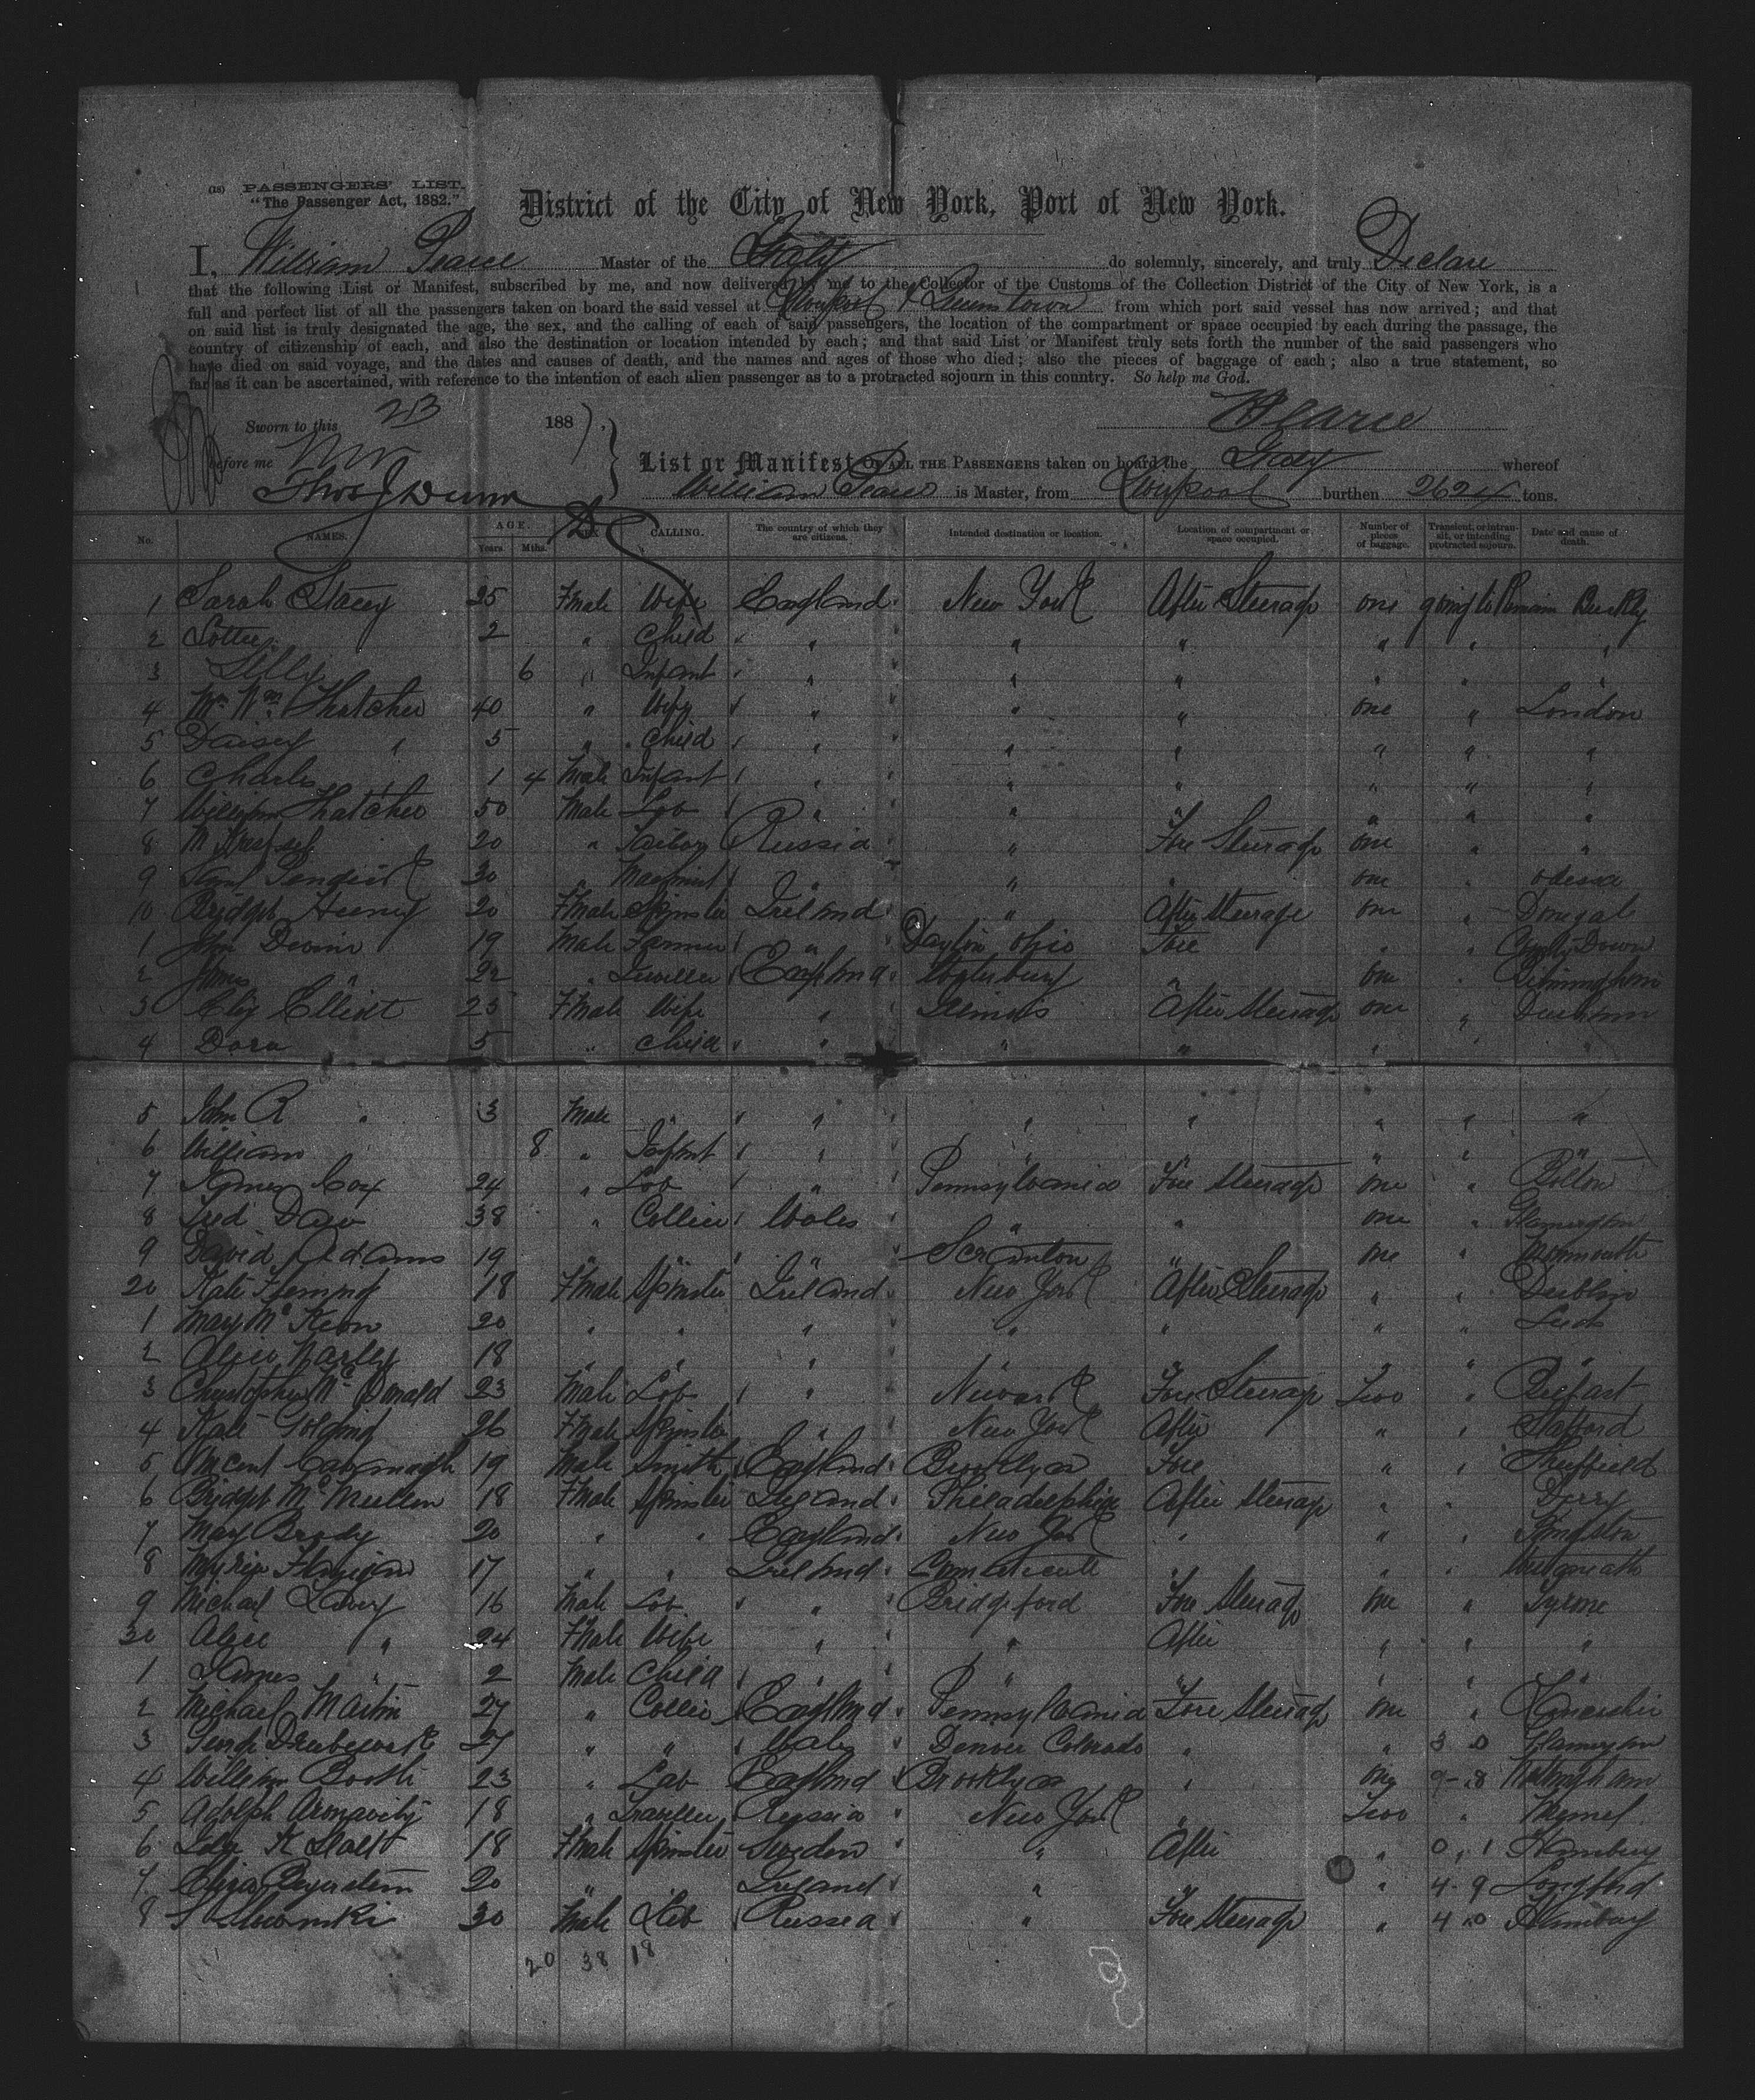 (18) PASSENGERS' LIST.
"The Passenger Act, 1882."
District of the City of New York, Port of New York.
I, William Pearce Master of the Italy do solemnly, sincerely, and truly Declare
that the following List or Manifest, subscribed by me, and now delivered by me to the Collector of the Customs of the Collection District of the City of New York, is a
full and perfect list of all the passengers taken on board the said vessel at Liverpool & Queenstown from which port said vessel has now arrived; and that
on said list is truly designated the age, the sex, and the calling of each of said passengers, the location of the compartment or space occupied by each during the passage, the
country of citizenship of each, and also the destination or location intended by each; and that said List or Manifest truly sets forth the number of the said passengers who
have died on said voyage, and the dates and causes of death, and the names and ages of those who died; also the pieces of baggage of each; also a true statement, so
far as it can be ascertained, with reference to the intention of each alien passenger as to a protracted sojourn in this country. So help me God.
Sworn to this 23 1887, Pearce
before me
Thos J Dunn
List or Manifest OF ALL THE PASSENGERS taken on board the Italy whereof
William Pearce is Master, from Liverpool burthen 2624 tons.
No. NAMES. AGE. Years Mths. SEX CALLING. The country of which they are citizens. Intended destination or location. Location of compartment or space occupied. Number of pieces of baggage. Transient, or in transit, or intending protracted sojourn. Date and cause of death.
1 Sarah Stacey 25 Fmale Wife England New York After Steerage one going to Remain
2 Lottie 2 " Child " " " " " " "
3 Lilly 6 " Infant " " " " " "
4 Mrs Wm Thatcher 40 " Wife " " " one " London
5 Daisy " 5 " Child " " " " " "
6 Charles 1 4 Male Infant " " " " " "
7 William Thatcher 50 Male Lab " " " " " "
8 M 20 " Tailor Russia " Fore Steerage one " "
9 30 " " " " one " Odessa
10 Bridget Heeney 20 Fmale Spinster Ireland " After Steerage one " Donegal
1 John Devine 19 Male Farmer " Dayton Ohio Fore " " County Down
2 James " 22 " Traveller England " one " Birmingham
3 Eliz Elliott 25 Fmale Wife " Illinois After Steerage one " Durham
4 Dora 5 " Child " " " " " "
5 John R " 3 Male " " " " " " "
6 William 8 " Infant " " " " "
7 James Cox 24 " Lab " Pennsylvania Fore Steerage one " Bolton
8 Fred Daw 38 " Collier Wales " " one "
9 David Adams 19 " " " Scranton " one " Monmouth
20 Kate Fleming 18 Fmale Spinster Ireland New York After Steerage " " Dublin
1 Mary McKeon 20 " " " " " " " Leeds
2 Alice 18 " " " " " " " "
3 Christopher McDonald 23 Male Lab " Newark Fore Steerage Two " Belfast
4 Kate Golding 26 Fmale Spinster " New York After " " Stafford
5 Vincent Cavanagh 19 Male Smith England Brooklyn Fore " " Sheffield
6 Bridget McMullen 18 Fmale Spinster Ireland Philadelphia After Steerage " " Derry
7 Mary Brady 20 " " England New York " " "
8 17 " " Ireland Connecticutt " " " Westmeath
9 Michael Lavery 16 Male Lab " Bridgeford Fore Steerage one " Tyrone
30 Alice " 24 Fmale Wife " " After " " "
1 James " 2 Male Child " " " " " "
2 Michael Martin 27 " Collier England Pennsylvania Fore Steerage one "
3 27 " " Wales Denver Colorado " "
4 William Booth 23 " Lab England Brooklyn " one
5 Adolph 18 " Traveller Russia New York " Two " Memel
6 18 Fmale Spinster Sweden " After "
7 Eliza 20 " " Ireland " " " 4-9 Longford
8 30 Male Lab Russia " Fore Steerage "
20 38 18